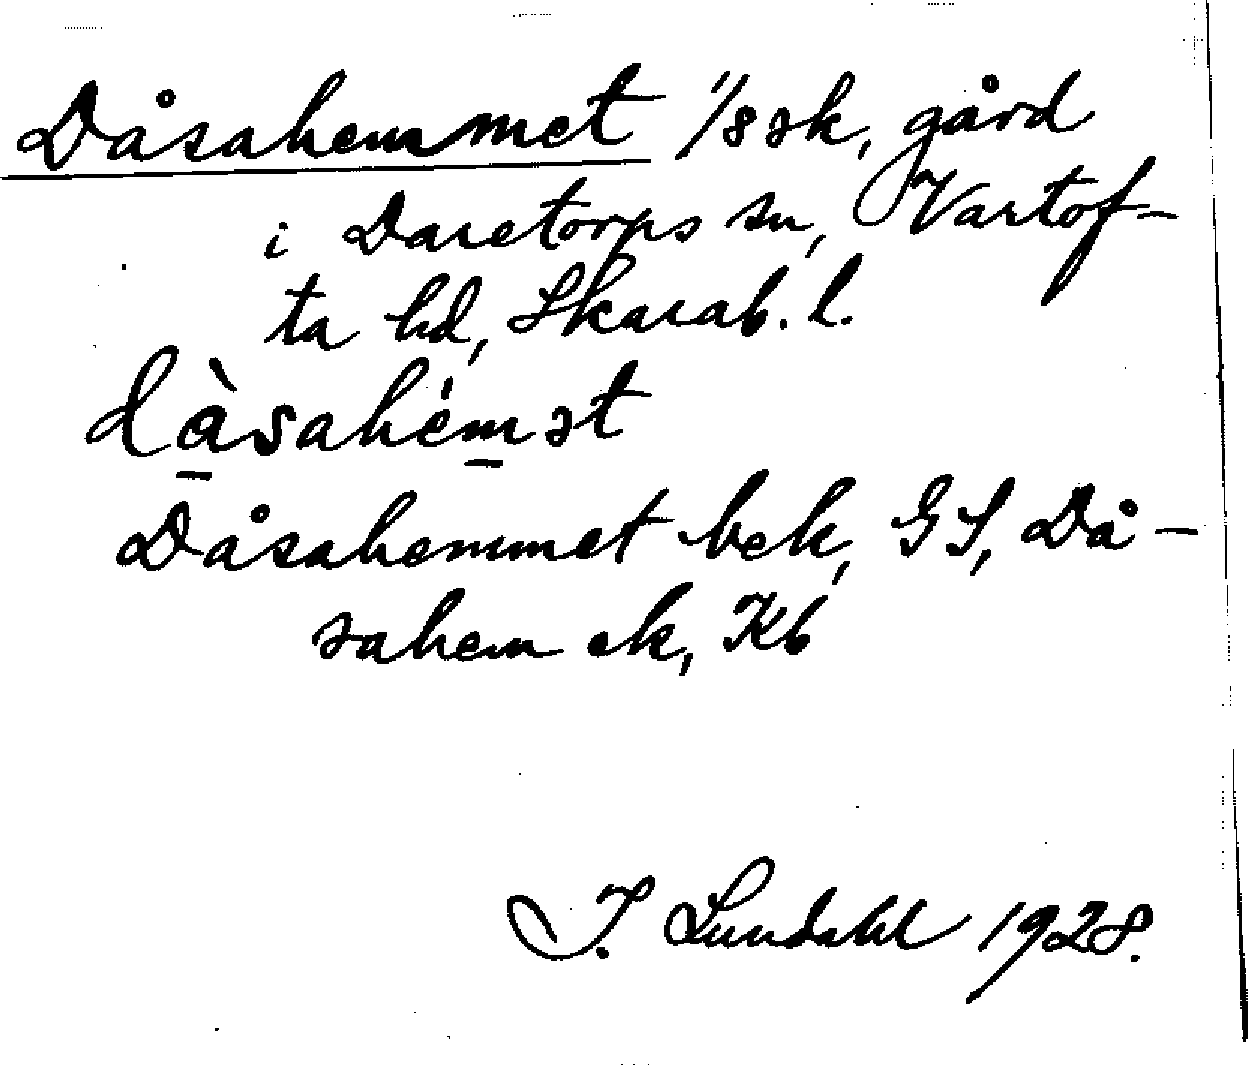 Dåsahemmet 1/8 sk, gård
i Daretorps sn, Vartof-
ta hd, Skarab. l.
dà̠sahém̠ət
Dåsahemmet bek, GS, Då-
sahem ek, Kb
I. Lundahl 1928.